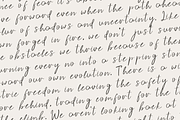 nce of fear it's ab
ve forward even when the path ahead
ur of shadows and uncertainty. Like
wn forged in fire, we don't just surviv
e obstacles we thrive because of them
urning every no into a stepping stone
ward our own evolution. There is a wi
tric freedom in leaving the safety of
ore behind, trading comfort for the t
the climb. We aren't looking back at